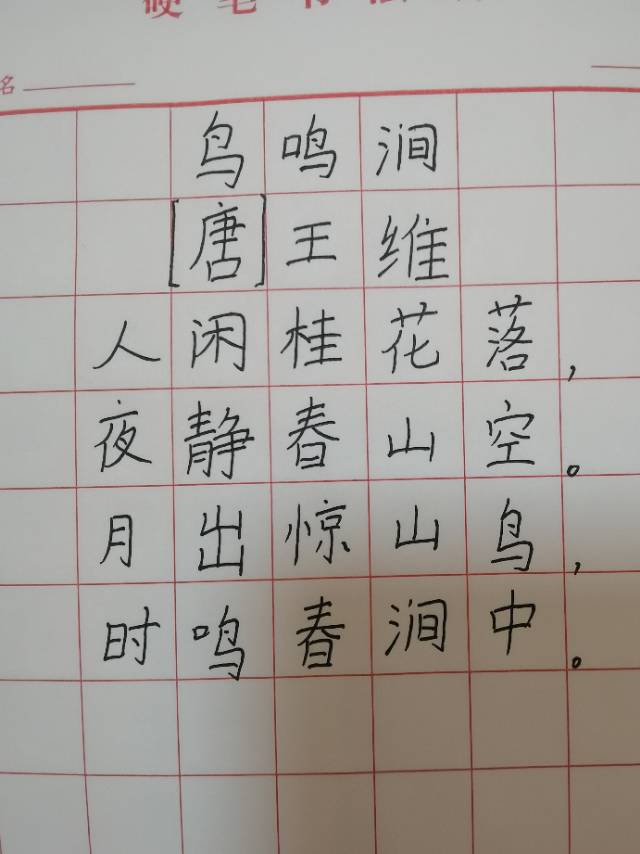 名
鸟鸣涧
[唐]王维
人闲桂花落，
夜静春山空。
月出惊山鸟，
时鸣春涧中。